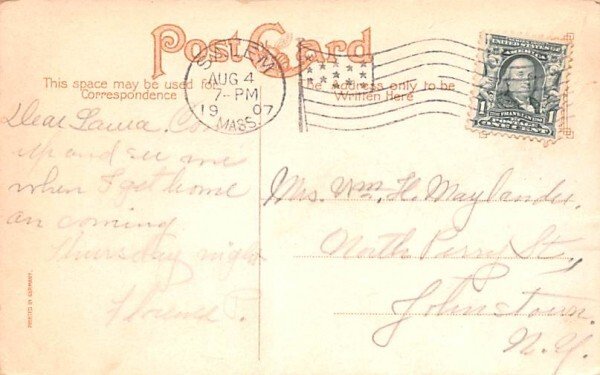 Post Card
This space may be used for
Correspondence
The Address only to be
Written Here
SALEM
AUG 4
7-PM
1907
MASS.
1
FRANKLIN
1
Dear Laura. Come
up and see me
when I get home
am coming
Thursday night
Florence P.
Mrs. Wm. H. Maylander
North Perry St.,
Johnstown.
N.Y.
PRINTED IN GERMANY.